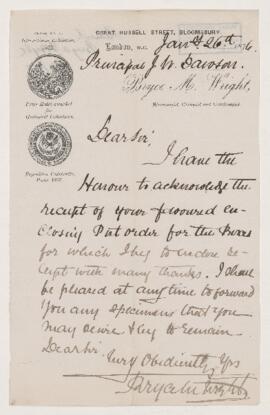 GREAT RUSSELL STREET, BLOOMSBURY,
London, W.C. Jany 26th 1876.
Principal J. W. Dawson.
Bryce M. Wright,
Mineralogist, Geologist and Conchologist.
Dear Sir,
I have the
Honour to acknowledge the
receipt of your favoured en-
closing P.O. order for the
for which I beg to enclose re-
ceipt with many thanks. I shall
be pleased at any time to forward
you any specimens that you
may desire & beg to remain
Dear Sir
Very Obediently Yrs
Bryce M Wright